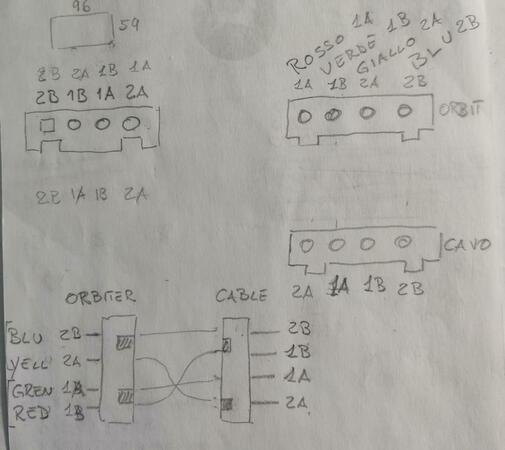 96
59
2B 2A 1B 1A
2B 1B 1A 2A
2B 1A 1B 2A
ROSSO 1A
VERDE 1B
GIALLO 2A
BLU 2B
1A 1B 2A 2B
ORBIT
CAVO
2A 1A 1B 2B
ORBITER CABLE
BLU 2B 2B
YELL 2A 1B
GREN 1A 1A
RED 1B 2A